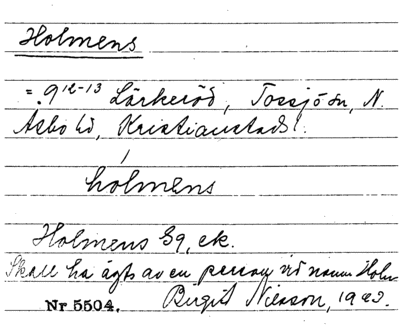 Holmens
= 9¹²⁻¹³ Lärkeröd, Tossjö sn, N.
Åsbo hd, Kristianstads l.
hólmens
Holmens Eg, ek.
Skall ha ägts av en person vid namn Holm
Nr 5504. Birgit Nilsson, 1943.